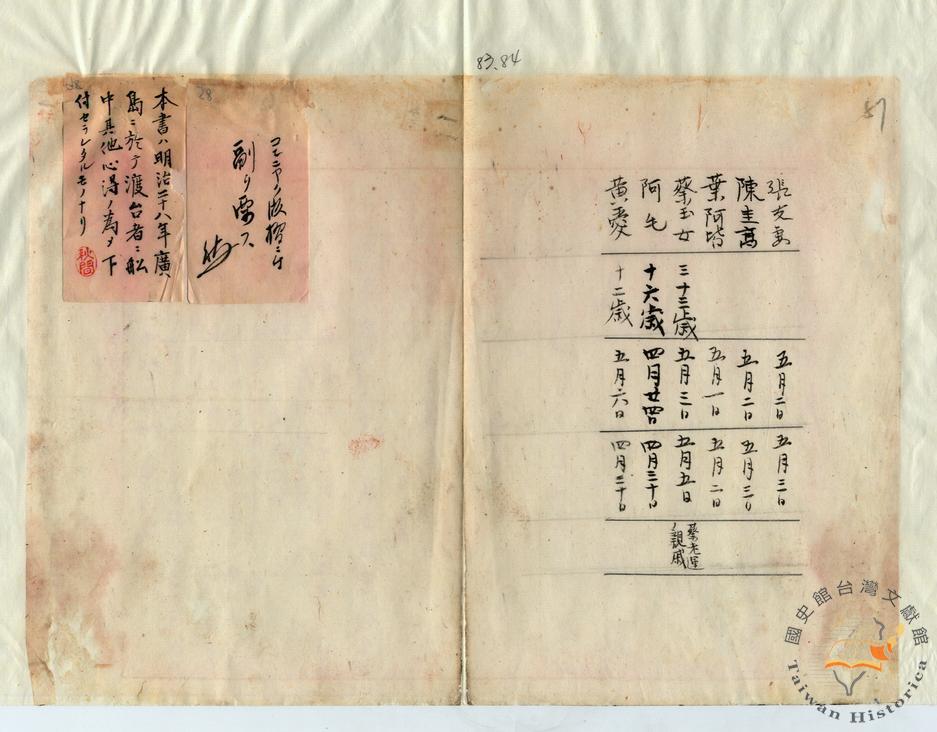 83.84
57
張友妻
陳圭萬
葉阿皆
蔡玉女
阿屯
黃愛
三十三歳
十六歳
十二歳
五月二日
五月二日
五月一日
五月三日
四月廿四日
五月六日
五月三日
五月三日
五月二日
五月五日
四月三十日
四月三十日
蔡老運
親戚
28
コンニャク版摺ニ付
28
本書ハ明治二十八年廣
島ニ於テ渡台者ニ船
中其他心得ノ為メ下
付セラレタルモノナリ
國史館台灣文獻館
Taiwan Historica